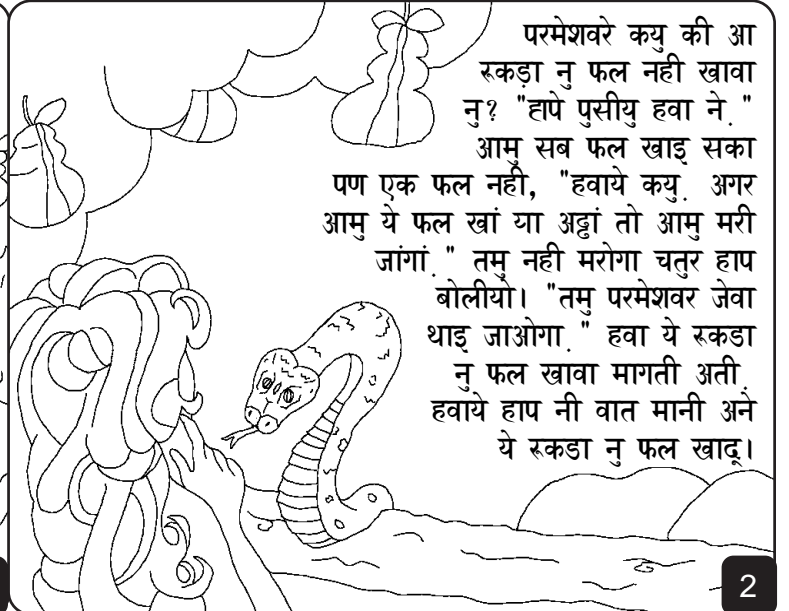 परमेशवरे कयु की आ
रूकड़ा नु फल नही खावा
नु? "हापे पुसीयु हवा ने."
आमु सब फल खाइ सका
पण एक फल नही, "हवाये कयु. अगर
आमु ये फल खां या अड्ढां तो आमु मरी
जांगां." तमु नही मरोगा चतुर हाप
बोलीयो। "तमु परमेशवर जेवा
थाइ जाओगा." हवा ये रूकडा
नु फल खावा मागती अती.
हवाये हाप नी वात मानी अने
ये रूकडा नु फल खादू।
2